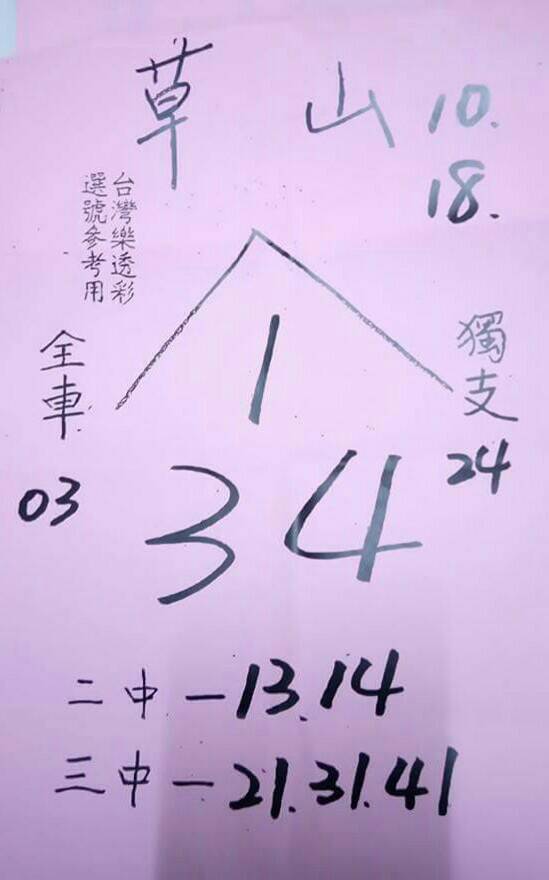 草山 10.
18.
台灣樂透彩
選號參考用
全車
03
獨支
24
1
34
二中一13.14
三中一21.31.41